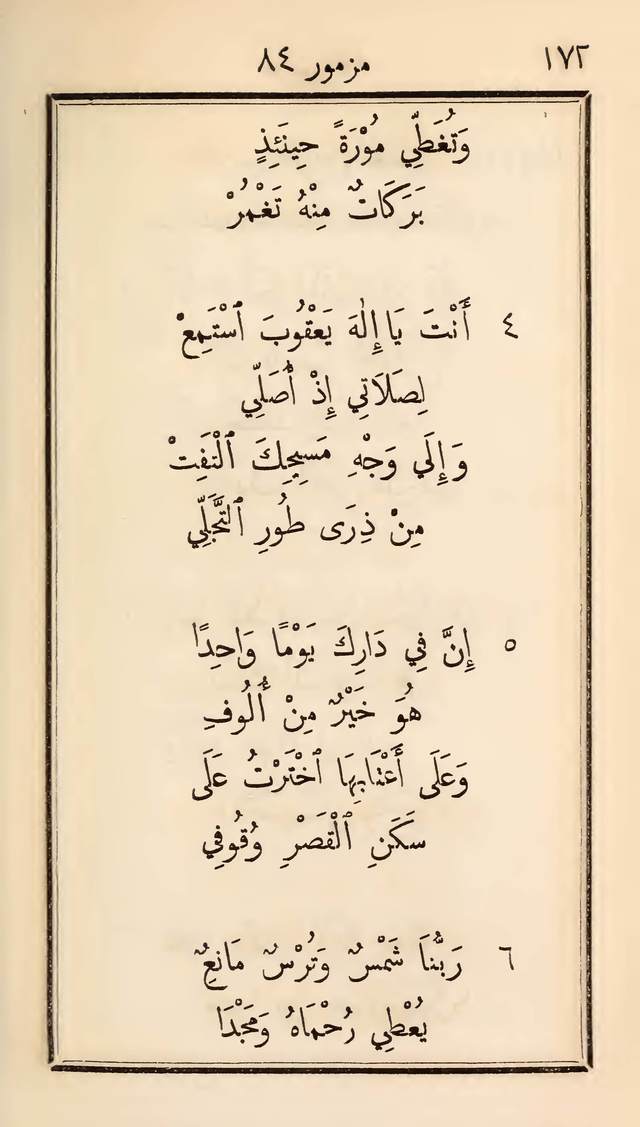 ١٧٢ مزمور ٨٤
وَتُغَطِّي مُوْرَةً حِينَئِذٍ
بَرَكَاتٌ مِنْهُ تَغْمُرْ
٤ أَنْتَ يَا إِلٰهَ يَعْقُوبَ ٱسْتَمِعْ
لِصَلَاتِي إِذْ أُصَلِّي
وَإِلَي وَجْهِ مَسِيحِكَ ٱلْتَفِتْ
مِنْ ذِرَى طُورِ ٱلتَّجَلِّي
٥ إِنَّ فِي دَارِكَ يَوْمًا وَاحِدًا
هُوَ خَيْرٌ مِنْ أُلُوفِ
وَعَلَى أَعْتَابِهَا ٱخْتَرْتُ عَلَى
سَكَنِ ٱلْقَصْرِ وُقُوفِي
٦ رَبُّنَا شَمْسٌ وَتُرْسٌ مَانِعٌ
يُعْطِي رُحْمَاهُ وَمَجْدَا